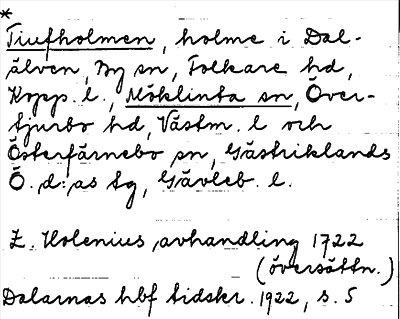 *
Tiufholmen, holme i Dal-
älven, By sn, Folkare hd,
Kopp. l., Möklinta sn, Över-
tjurbo hd, Västm. l och
Österfärnebo sn, Gästriklands
Ö. d:as tg, Gävleb. l.
E. Holenius, avhandling 1722
(översättn.)
Dalarnas hbf tidskr. 1922, s. 5